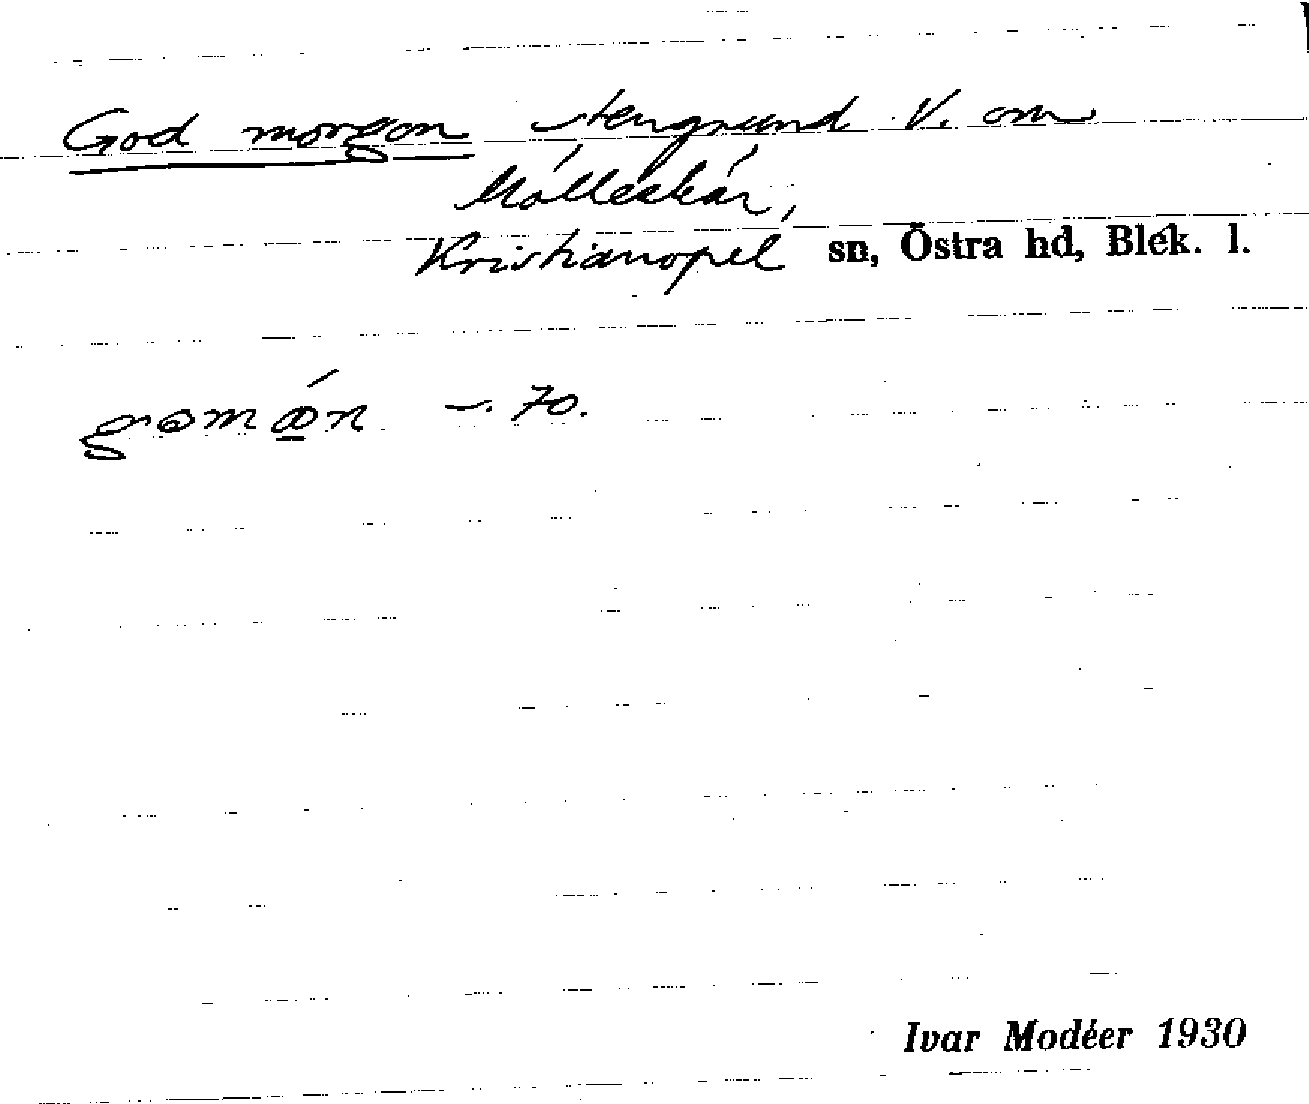 God morgon stengrund V. om
Mölleskär,
Kristianopel sn, Östra hd, Blek. l.
– . 70.
Ivar Modéer 1930